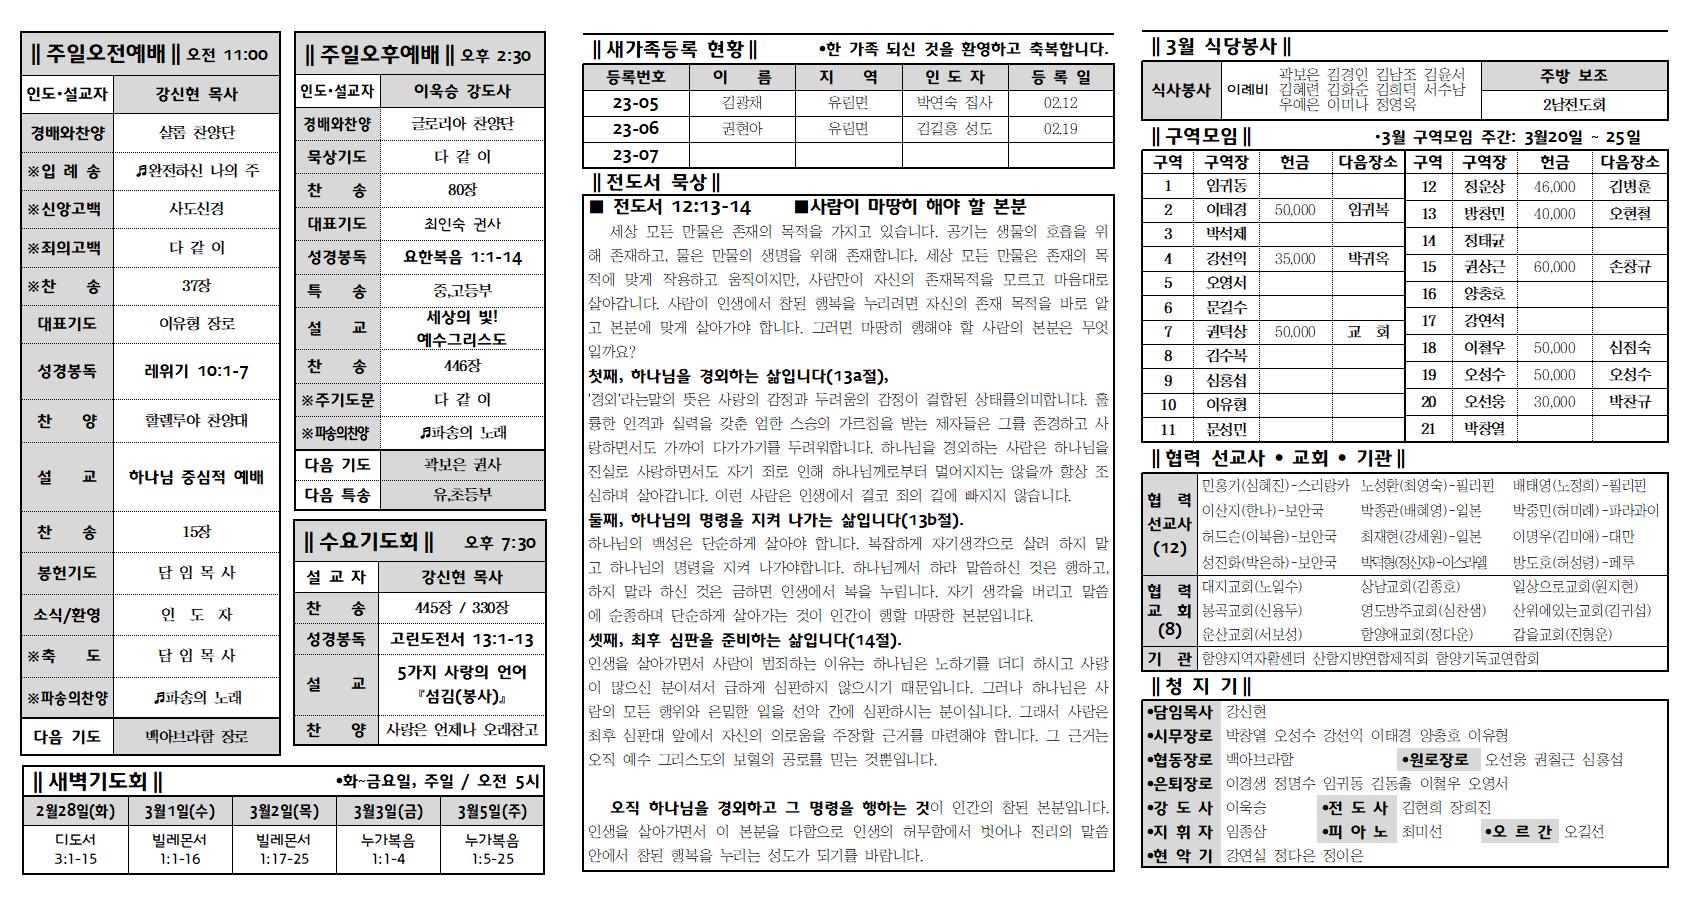 ‖주일오전예배‖ 오전 11:00
인도·설교자 강신현 목사
경배와찬양 샬롬 찬양단
※입 례 송 ♬완전하신 나의 주
※신앙고백 사도신경
※죄의고백 다 같 이
※찬 송 37장
대표기도 이유형 장로
성경봉독 레위기 10:1-7
찬 양 할렐루야 찬양대
설 교 하나님 중심적 예배
찬 송 15장
봉헌기도 담 임 목 사
소식/환영 인 도 자
※축 도 담 임 목 사
※파송의찬양 ♬파송의 노래
다음 기도 백아브라함 장로
‖주일오후예배‖ 오후 2:30
인도·설교자 이욱승 강도사
경배와찬양 글로리아 찬양단
묵상기도 다 같 이
찬 송 80장
대표기도 최인숙 권사
성경봉독 요한복음 1:1-14
특 송 중,고등부
설 교 세상의 빛!
예수그리스도
찬 송 446장
※주기도문 다 같 이
※파송의찬양 ♬파송의 노래
다음 기도 곽보은 권사
다음 특송 유,초등부
‖수요기도회‖ 오후 7:30
설 교 자 강신현 목사
찬 송 445장 / 330장
성경봉독 고린도전서 13:1-13
설 교 5가지 사랑의 언어
『섬김(봉사)』
찬 양 사랑은 언제나 오래참고
‖새벽기도회‖ •화~금요일, 주일 / 오전 5시
2월28일(화) 3월1일(수) 3월2일(목) 3월3일(금) 3월5일(주)
디도서 빌레몬서 빌레몬서 누가복음 누가복음
3:1-15 1:1-16 1:17-25 1:1-4 1:5-25
‖새가족등록 현황‖ •한 가족 되신 것을 환영하고 축복합니다.
등록번호 이 름 지 역 인 도 자 등 록 일
23-05 김광채 유림면 박연숙 집사 02.12
23-06 권현아 유림면 김길홍 성도 02.19
23-07
‖전도서 묵상‖
■ 전도서 12:13-14 ■사람이 마땅히 해야 할 본분
세상 모든 만물은 존재의 목적을 가지고 있습니다. 공기는 생물의 호흡을 위
해 존재하고, 물은 만물의 생명을 위해 존재합니다. 세상 모든 만물은 존재의 목
적에 맞게 작용하고 움직이지만, 사람만이 자신의 존재목적을 모르고 마음대로
살아갑니다. 사람이 인생에서 참된 행복을 누리려면 자신의 존재 목적을 바로 알
고 본분에 맞게 살아가야 합니다. 그러면 마땅히 행해야 할 사람의 본분은 무엇
일까요?
첫째, 하나님을 경외하는 삶입니다(13a절),
'경외'라는말의 뜻은 사랑의 감정과 두려움의 감정이 결합된 상태를의미합니다. 훌
륭한 인격과 실력을 갖춘 엄한 스승의 가르침을 받는 제자들은 그를 존경하고 사
랑하면서도 가까이 다가가기를 두려워합니다. 하나님을 경외하는 사람은 하나님을
진실로 사랑하면서도 자기 죄로 인해 하나님께로부터 멀어지지는 않을까 항상 조
심하며 살아갑니다. 이런 사람은 인생에서 결코 죄의 길에 빠지지 않습니다.
둘째, 하나님의 명령을 지켜 나가는 삶입니다(13b절).
하나님의 백성은 단순하게 살아야 합니다. 복잡하게 자기생각으로 살려 하지 말
고 하나님의 명령을 지켜 나가야합니다. 하나님께서 하라 말씀하신 것은 행하고,
하지 말라 하신 것은 금하면 인생에서 복을 누립니다. 자기 생각을 버리고 말씀
에 순종하며 단순하게 살아가는 것이 인간이 행할 마땅한 본분입니다.
셋째, 최후 심판을 준비하는 삶입니다(14절).
인생을 살아가면서 사람이 범죄하는 이유는 하나님은 노하기를 더디 하시고 사랑
이 많으신 분이셔서 급하게 심판하지 않으시기 때문입니다. 그러나 하나님은 사
람의 모든 행위와 은밀한 일을 선악 간에 심판하시는 분이십니다. 그래서 사람은
최후 심판대 앞에서 자신의 의로움을 주장할 근거를 마련해야 합니다. 그 근거는
오직 예수 그리스도의 보혈의 공로를 믿는 것뿐입니다.
오직 하나님을 경외하고 그 명령을 행하는 것이 인간의 참된 본분입니다.
인생을 살아가면서 이 본분을 다함으로 인생의 허무함에서 벗어나 진리의 말씀
안에서 참된 행복을 누리는 성도가 되기를 바랍니다.
‖3월 식당봉사‖
식사봉사 이레비 곽보은 김경인 김남조 김윤서 주방 보조
김혜련 김화순 김희덕 서수남
우예은 이미나 정영옥 2남전도회
‖구역모임‖ •3월 구역모임 주간: 3월20일 ~ 25일
구역 구역장 헌금 다음장소 구역 구역장 헌금 다음장소
1 임귀동 12 정운상 46,000 김병훈
2 이태경 50,000 임귀복 13 방창민 40,000 오현철
3 박석제 14 정태균
4 강선익 35,000 박귀옥 15 권상근 60,000 손창규
5 오영서 16 양충호
6 문길수 17 강연석
7 권덕상 50,000 교 회 18 이철우 50,000 심점숙
8 김수복 19 오성수 50,000 오성수
9 심홍섭 20 오선웅 30,000 박찬규
10 이유형 21 박창열
11 문성민
‖협력 선교사 • 교회 • 기관‖
협 력
선교사
(12)
민홍기(심혜진)-스리랑카 노성환(최영숙)-필리핀 배태영(노정희)-필리핀
이산지(한나)-보안국 박종관(배혜영)-일본 박중민(허미례)-파라과이
허드슨(이복음)-보안국 최재현(강세원)-일본 이명우(김미애)-대만
성진화(박은하)-보안국 박덕형(정신자)-이스라엘 방도호(허성령)-페루
협 력
교 회
(8)
대지교회(노일수) 상남교회(김종호) 일상으로교회(원지현)
봉곡교회(신용두) 영도방주교회(심찬샘) 산위에있는교회(김귀섭)
운산교회(서보성) 함양애교회(정다운) 갑을교회(진형운)
기 관 함양지역자활센터 산함지방연합제직회 함양기독교연합회
‖청 지 기‖
•담임목사 강신현
•시무장로 박창열 오성수 강선익 이태경 양충호 이유형
•협동장로 백아브라함 •원로장로 오선웅 권칠근 심홍섭
•은퇴장로 이경생 정명수 임귀동 김동출 이철우 오영서
•강 도 사 이욱승 •전 도 사 김현희 장희진
•지 휘 자 임종삼 •피 아 노 최미선 •오 르 간 오길선
•현 악 기 강연실 정다은 정이은